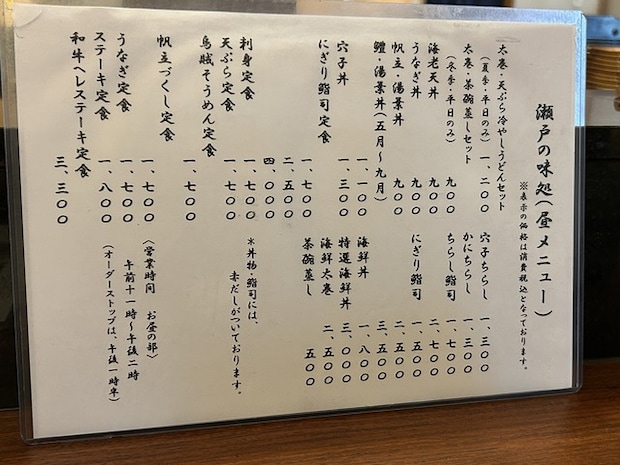 瀬戸の味処(昼メニュー)
※表示の価格は消費税込となっております。
太巻・天ぷら冷やしうどんセット
(夏季・平日のみ) 一、二〇〇
太巻・茶碗蒸しセット
(冬季・平日のみ) 九〇〇
海老天丼 九〇〇
うなぎ丼 九〇〇
帆立・湯葉丼 九〇〇
鱧・湯葉丼(五月〜九月)
一、一〇〇
穴子丼 一、三〇〇
にぎり鮨司定食
一、七〇〇
二、五〇〇
四、〇〇〇
刺身定食 一、七〇〇
天ぷら定食 一、七〇〇
烏賊そうめん定食
一、七〇〇
帆立づくし定食
一、七〇〇
うなぎ定食 一、七〇〇
ステーキ定食 一、八〇〇
和牛ヘレステーキ定食
三、三〇〇
穴子ちらし 一、三〇〇
かにちらし 一、三〇〇
ちらし鮨司 一、七〇〇
二、七〇〇
にぎり鮨司 一、五〇〇
二、五〇〇
三、五〇〇
海鮮丼 一、八〇〇
特選海鮮丼 三、〇〇〇
海鮮太巻 二、五〇〇
茶碗蒸し 五〇〇
*丼物・鮨司には、
赤だしがついております。
(営業時間 お昼の部)
午前十一時〜午後二時
(オーダーストップは、午後一時半)